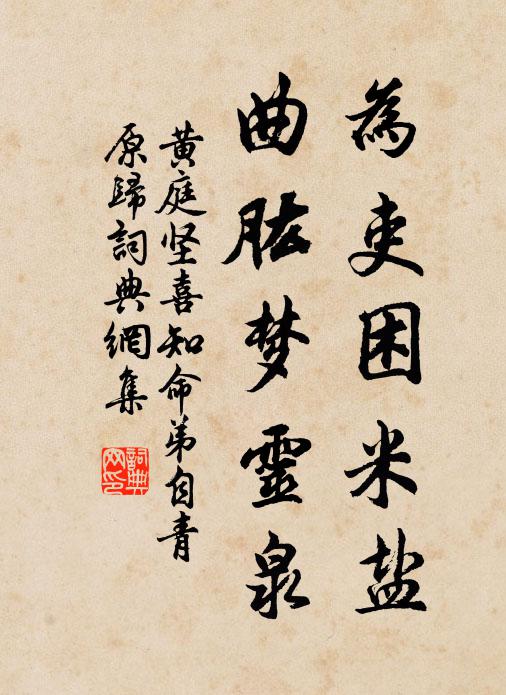 為吏困米盐
曲肱梦靈泉
黄庭坚喜知命弟自青
原歸詞典網集
詞典
网印